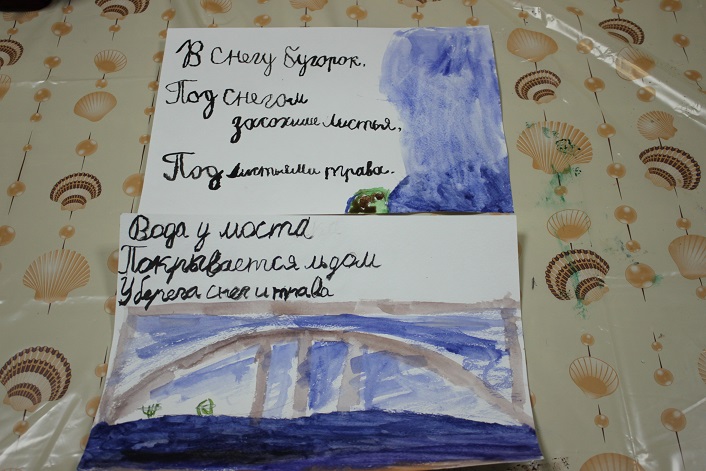 В снегу бугорок.
Под снегом
засохшие листья,
Под листьями трава.
Вода у моста
Покрывается льдом
У берега снег и трава